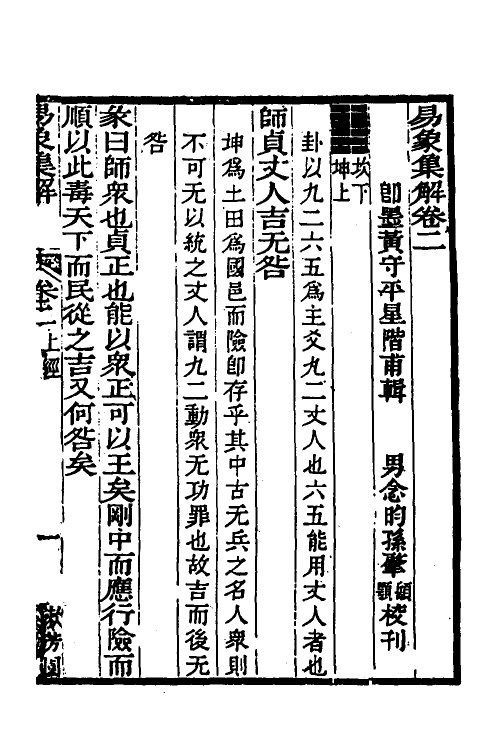 易象集解卷二
卽墨黃守平星階甫輯 男念昀孫肇顴顎校刊
坎下
坤上
卦以九二六五爲主爻九二丈人也六五能用丈人者也
師貞丈人吉无咎
坤爲土田爲國邑而險卽存乎其中古无兵之名人衆則
不可无以統之丈人謂九二動衆无功罪也故吉而後无
咎
彖曰師衆也貞正也能以衆正可以王矣剛中而應行險而
順以此毒天下而民從之吉又何咎矣
易象集解 卷二 上經 一 漱芳園